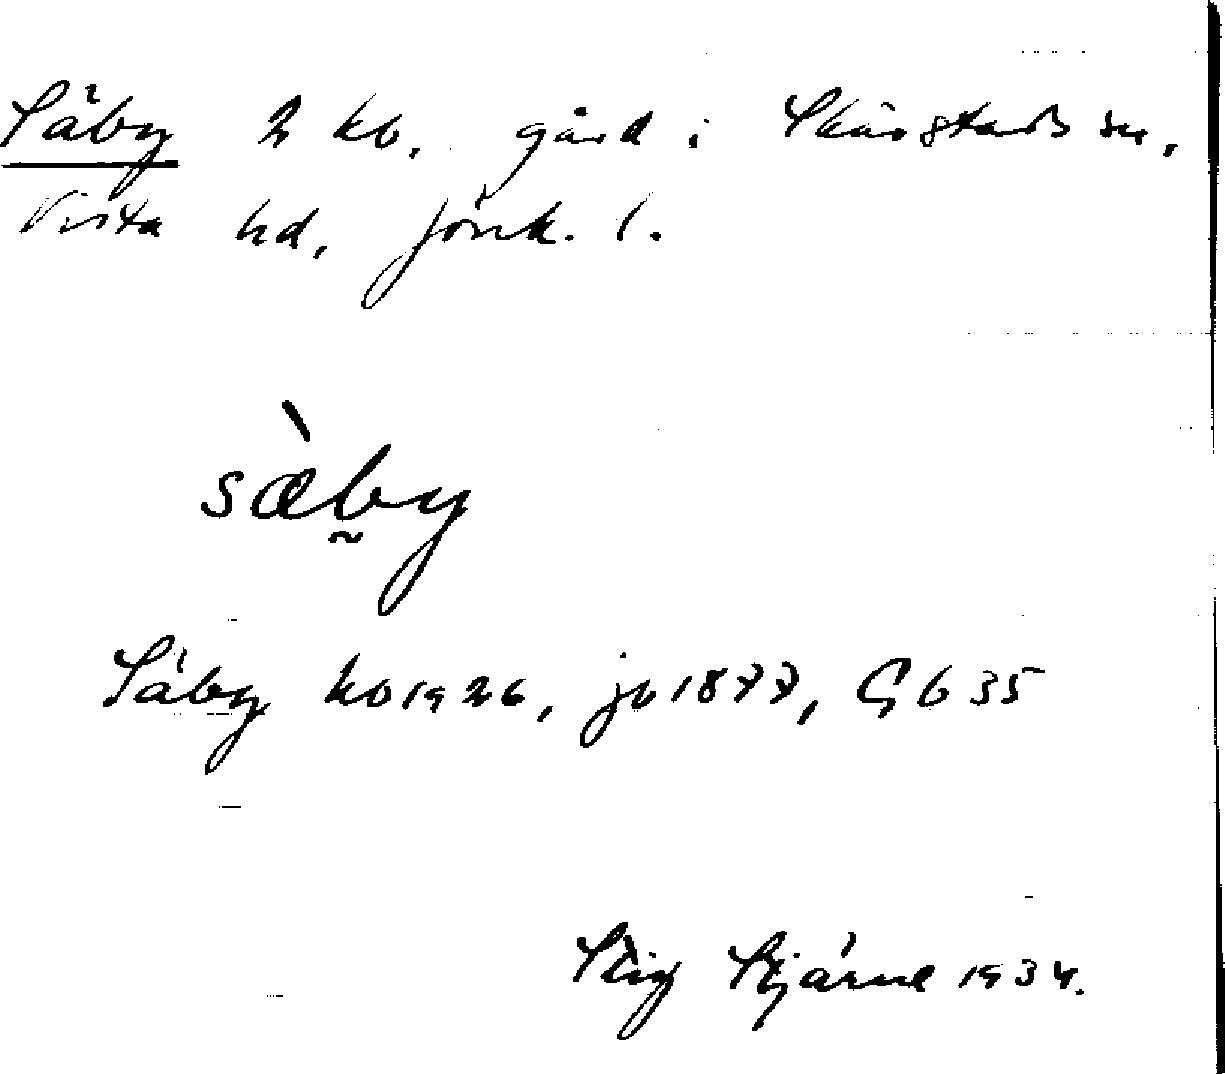 Säby 2 kb, gård i Skärstads sn,
Vista hd, Jönk. l.
sæ̀by
Säby kb 1926, jb 1877, Gb 35
Stig Stjärne 1934.